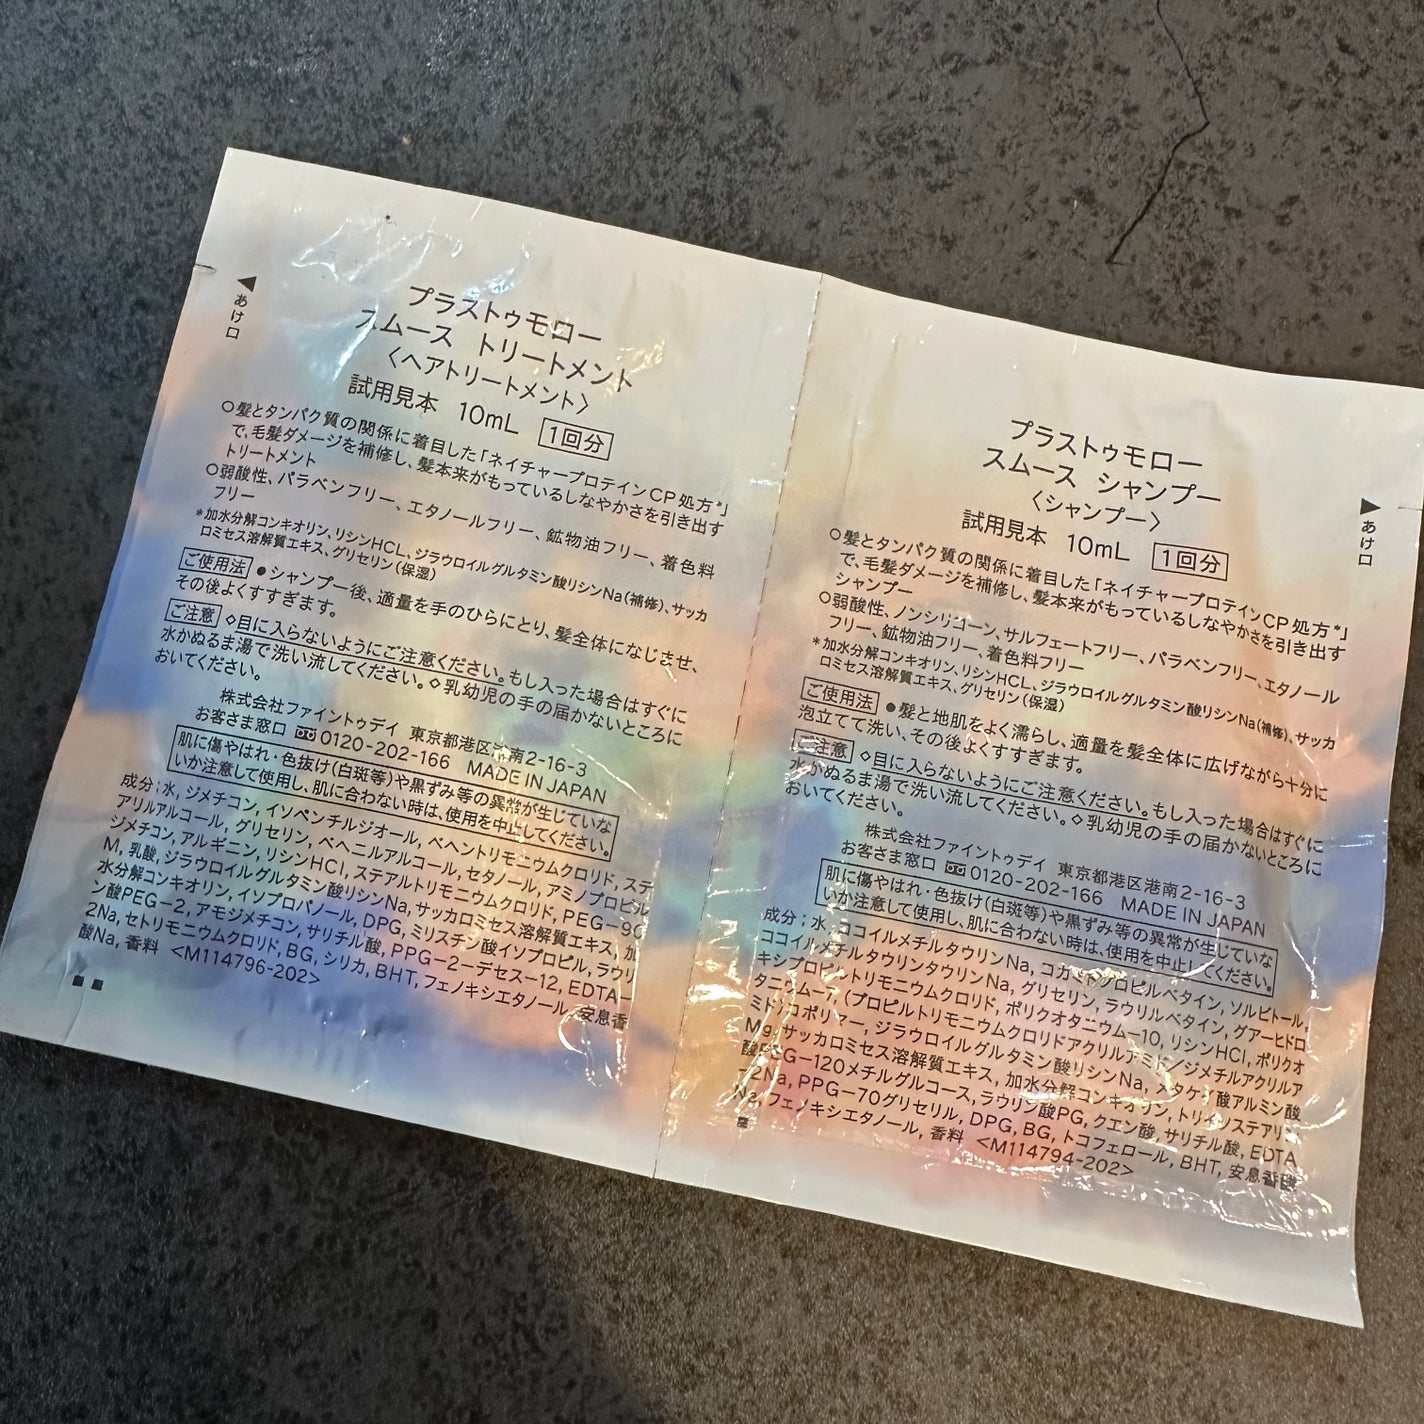 あけ口
プラストゥモロー
スムース トリートメント
〈ヘアトリートメント〉
試用見本 10mL 1回分
○髪とタンパク質の関係に着目した「ネイチャープロテインCP処方*」
で、毛髪ダメージを補修し、髪本来がもっているしなやかさを引き出す
トリートメント
○弱酸性、パラベンフリー、エタノールフリー、鉱物油フリー、着色料
フリー
*加水分解コンキオリン、リシンHCL、ジラウロイルグルタミン酸リシンNa(補修)、サッカ
ロミセス溶解質エキス、グリセリン(保湿)
ご使用法 ●シャンプー後、適量を手のひらにとり、髪全体になじませ、
その後よくすすぎます。
ご注意 ◇目に入らないようにご注意ください。もし入った場合はすぐに
水かぬるま湯で洗い流してください。◇乳幼児の手の届かないところに
おいてください。
株式会社ファイントゥデイ 東京都港区港南2-16-3
お客さま窓口 0120-202-166 MADE IN JAPAN
肌に傷やはれ・色抜け(白斑等)や黒ずみ等の異常が生じていな
いか注意して使用し、肌に合わない時は、使用を中止してください。
成分；水, ジメチコン, イソペンチルジオール, ベヘントリモニウムクロリド, ステ
アリルアルコール, グリセリン, ベヘニルアルコール, セタノール, アミノプロピル
ジメチコン, アルギニン, リシンHCl, ステアルトリモニウムクロリド, PEG-90
M, 乳酸, ジラウロイルグルタミン酸リシンNa, サッカロミセス溶解質エキス, 加
水分解コンキオリン, イソプロパノール, DPG, ミリスチン酸イソプロピル, ラウリ
ン酸PEG-2, アモジメチコン, サリチル酸, PPG-2-デセス-12, EDTA-
2Na, セトリモニウムクロリド, BG, シリカ, BHT, フェノキシエタノール, 安息香
酸Na, 香料 <M114796-202>
プラストゥモロー
スムース シャンプー
〈シャンプー〉
試用見本 10mL 1回分
あけ口
○髪とタンパク質の関係に着目した「ネイチャープロテインCP処方*」
で、毛髪ダメージを補修し、髪本来がもっているしなやかさを引き出す
シャンプー
○弱酸性、ノンシリコーン、サルフェートフリー、パラベンフリー、エタノール
フリー、鉱物油フリー、着色料フリー
*加水分解コンキオリン、リシンHCL、ジラウロイルグルタミン酸リシンNa(補修)、サッカ
ロミセス溶解質エキス、グリセリン(保湿)
ご使用法 ●髪と地肌をよく濡らし、適量を髪全体に広げながら十分に
泡立てて洗い、その後よくすすぎます。
ご注意 ◇目に入らないようにご注意ください。もし入った場合はすぐに
水かぬるま湯で洗い流してください。◇乳幼児の手の届かないところに
おいてください。
株式会社ファイントゥデイ 東京都港区港南2-16-3
お客さま窓口 0120-202-166 MADE IN JAPAN
肌に傷やはれ・色抜け(白斑等)や黒ずみ等の異常が生じていな
いか注意して使用し、肌に合わない時は、使用を中止してください。
成分；水, ココイルメチルタウリンNa, コカミドプロピルベタイン, ソルビトール,
ココイルメチルタウリンタウリンNa, グリセリン, ラウリルベタイン, グアーヒドロ
キシプロピルトリモニウムクロリド, ポリクオタニウム-10, リシンHCl, ポリクオ
タニウム-7, (プロピルトリモニウムクロリドアクリルアミド/ジメチルアクリルア
ミド)コポリマー, ジラウロイルグルタミン酸リシンNa, メタケイ酸アルミン酸
Mg, サッカロミセス溶解質エキス, 加水分解コンキオリン, トリイソステアリン
酸PEG-120メチルグルコース, ラウリン酸PG, クエン酸, サリチル酸, EDTA
-2Na, PPG-70グリセリル, DPG, BG, トコフェロール, BHT, 安息香酸
Na, フェノキシエタノール, 香料 <M114794-202>